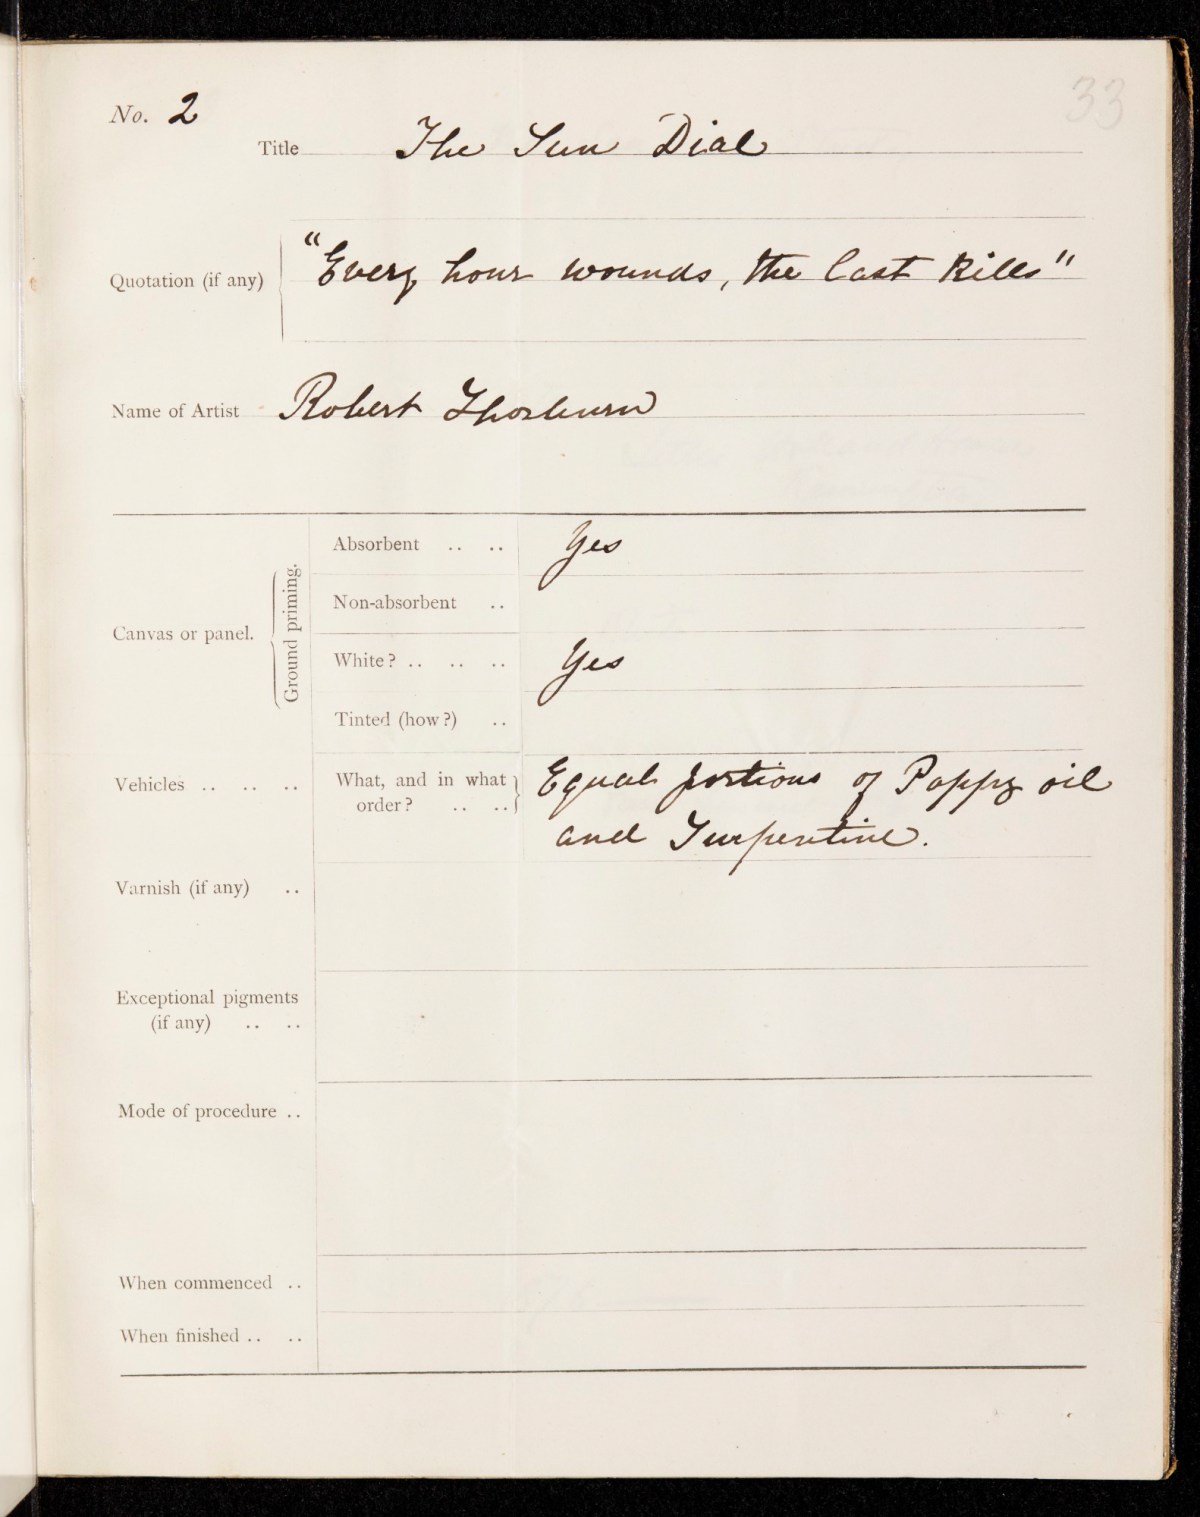 33
No. 2
Title The Sun Dial
Quotation (if any) "Every hour wounds, the last kills"
Name of Artist Robert Thorburn
Canvas or panel.
Ground priming.
Absorbent .. .. Yes
Non-absorbent ..
White? .. .. .. Yes
Tinted (how?) ..
Vehicles .. .. .. What, and in what order? .. .. Equal portions of Poppy oil
and Turpentine.
Varnish (if any) ..
Exceptional pigments
(if any) .. ..
Mode of procedure ..
When commenced ..
When finished .. ..